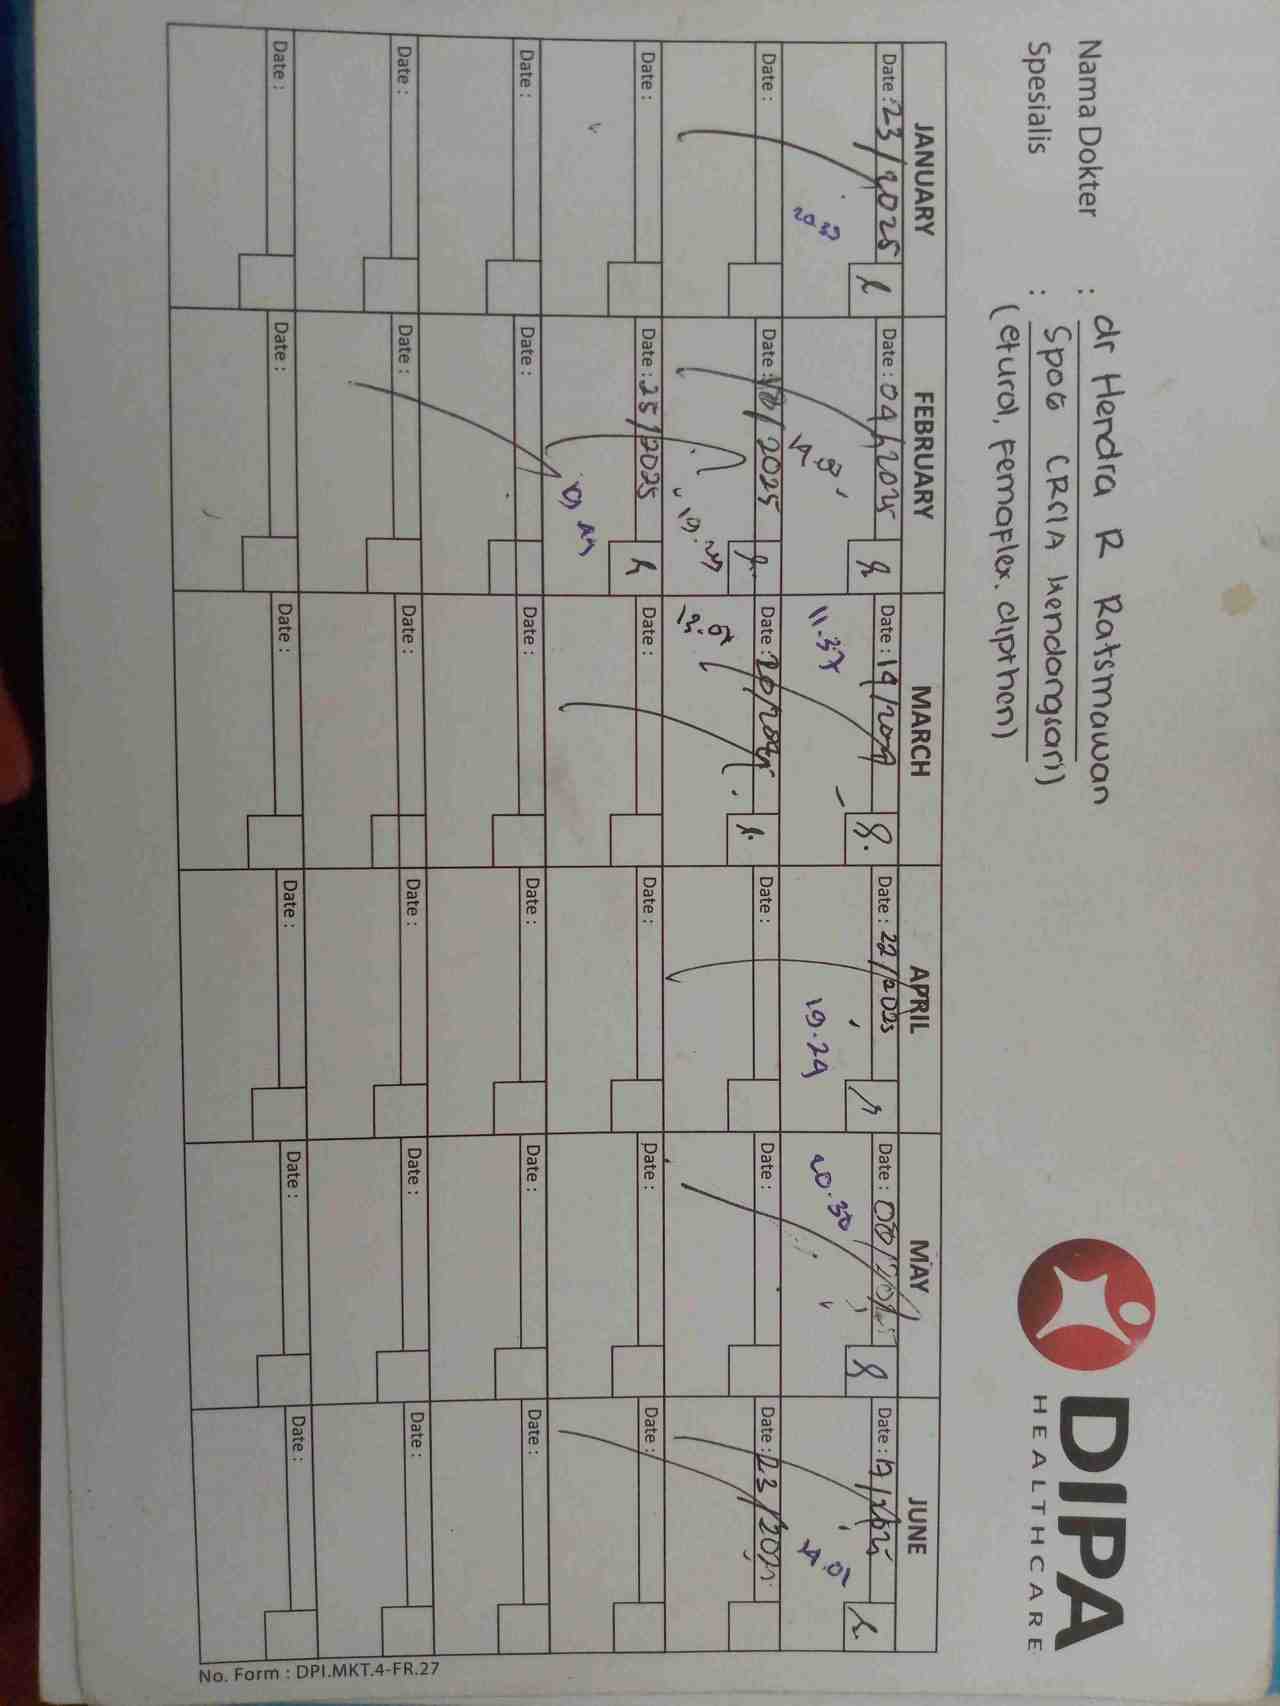 DIPA
HEALTHCARE
Nama Dokter : dr Hendra R Ratsmawan
Spesialis : Spog CRSIA Kendangsari)
(eturol, Femaplex. dipthen)
JANUARY FEBRUARY MARCH APRIL MAY JUNE
Date : 23/2025 Date : 04/2025 Date : 19/ Date : 22/2025 Date : 08/2025 Date : 17/
11.37 19.29 20.30 14.01
Date : Date : 18/2025 Date : 20/2025 Date : Date : Date : 23/2025
Date : Date : 25/2025 Date : Date : Date : Date :
Date : Date : Date : Date : Date : Date :
Date : Date : Date : Date : Date : Date :
Date : Date : Date : Date : Date : Date :
No. Form : DPI.MKT.4-FR.27